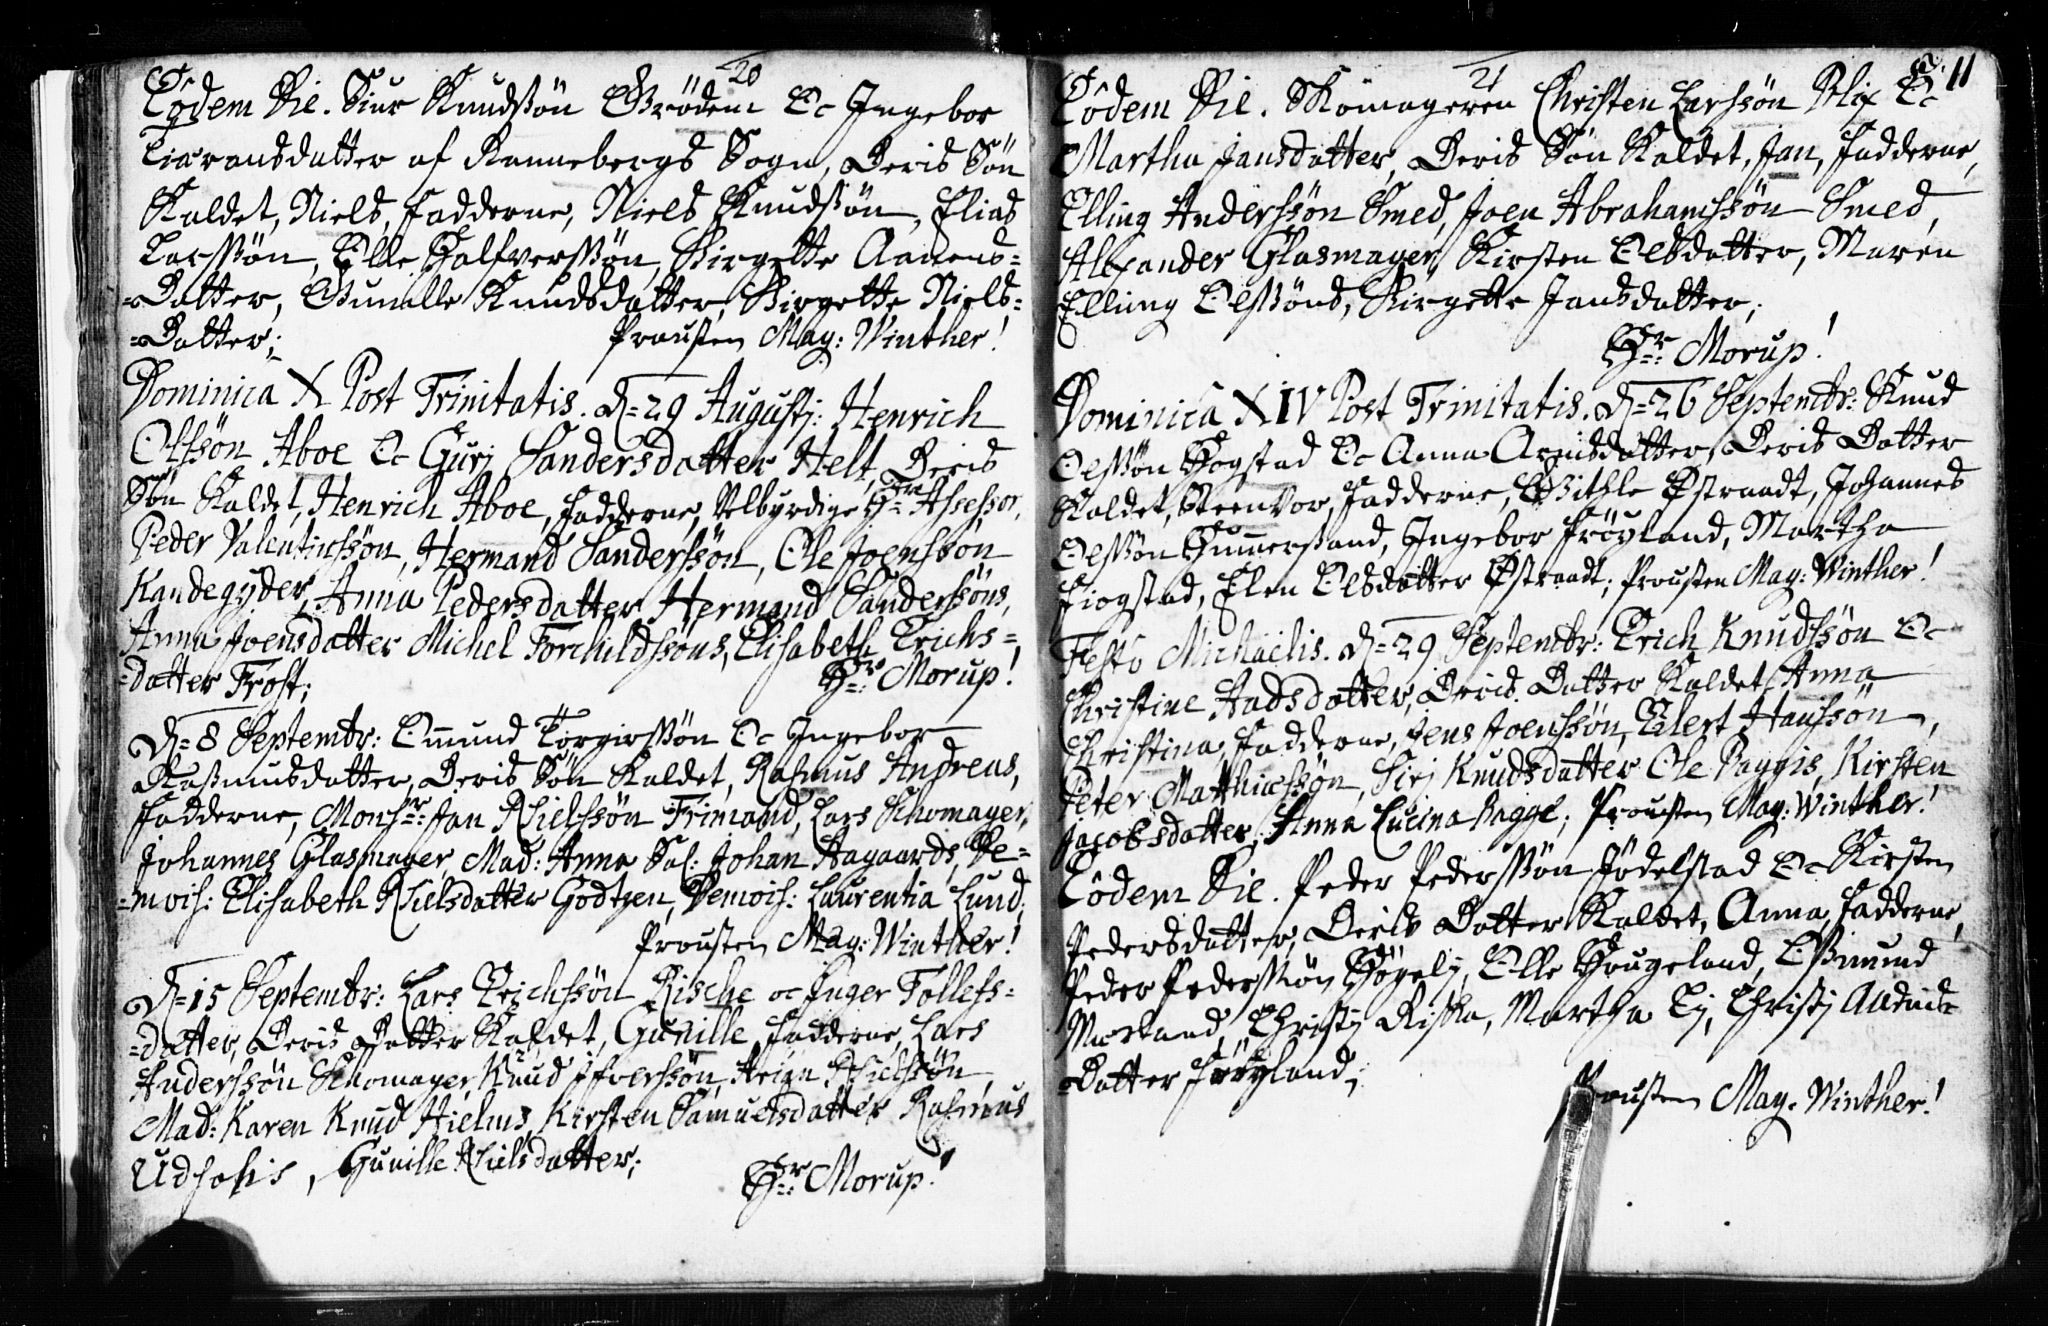 20
Eodem Die. Siur Knudssøn Grødem Oc Ingebor
Tiarandsdatter af Rannebergs Sogn, Deris Søn
Kaldet, Niels, Fadderne, Niels Knudssøn, Elias
Larssøn, Olle Halfverssøn, Birgette Aanens-
-Datter, Gunille Knudsdatter, Birgette Niels-
-Datter; Prousten Mag: Winther!
Dominica X Post Trinitatis. D=29 Augustj: Henrich
Olssøn Aboe Oc Gurj Sandersdatter Helt, Deris
Søn Kaldet, Henrich Aboe, Fadderne, Velbyrdige Hr Assessor,
Peder Valentinssøn, Hermand Sanderssøn, Ole Joenssøn
Kandegyder, Anna Pedersdatter Hermand Sanderssøns,
Anna Joensdatter Michel Torchildssøns, Elisabeth Erichs-
-datter Frost; Hr: Morup!
D=8 Septembr: Omund Torgirssøn Oc Ingebor
Rasmusdatter, Deris Søn Kaldet, Rasmus Andreas,
Fadderne, Monsr: Jan Nielssøn Frimand, Lars Schomager,
Johannes Glasmager, Mad: Anna Sal: Johan Aagaards, De-
-mois: Elisabeth Nielsdatter Godtzen, Demois: Laurentia Lund;
Prousten Mag: Winther!
D=15 Septembr: Lars Erichssøn Rische oc Inger Tollefs-
-datter, Deris Datter Kaldet, Gunille, Fadderne, Lars
Anderssøn Schomager, Knud Ifverssøn, Nielssøn,
Mad: Karen Knud Hielms, Kirsten Samuelsdatter Rasmus
Udsohis, Gunille Nielsdatter;
Hr: Morup!
21
11
Eodem Die. Skomageren Christen Larssøn Blix Oc
Martha Jansdatter, Deris Søn Kaldet, Jan, Fadderne,
Elling Anderssøn Smed, Joen Abrahamssøn Smed,
Alexander Glasmager, Kirsten Olsdatter, Maren
Elling Olssøns, Birgette Jansdatter;
Hr: Morup!
Dominica XIV Post Trinitatis. D=26 Septembr: Knud
Olssøn Hogstad Oc Anna Arnisdatter, Deris Datter
Kaldet, Steenvor, Fadderne, Githle Østraadt, Johannes
Olssøn Hummersand, Ingebor Frøyland, Martha
Fiogstad, Elen Olsdatter Østraadt; Prousten Mag: Winther!
Festo Michaëlis. D=29 Septembr: Erich Knudssøn Oc
Christine Aadsdatter, Deris Datter Kaldet, Anna
Christina, Fadderne, Jens Joenssøn, Eilert Hanssøn,
Peter Matthiessøn, Sirj Knudsdatter Ole Baggis, Kirsten
Jacobsdatter, Anna Lucina Bagge; Prousten Mag: Winther!
Eodem Die. Peder Pederssøn Jødelstad Oc Kirsten
Pedersdatter, Deris Datter Kaldet, Anna, Fadderne,
Peder Pederssøn Høyelj, Olle Haugeland, Osmund
Morland, Christj Riska, Martha Lj, Christj
-Datter Frøyland;
Prousten Mag: Winther!